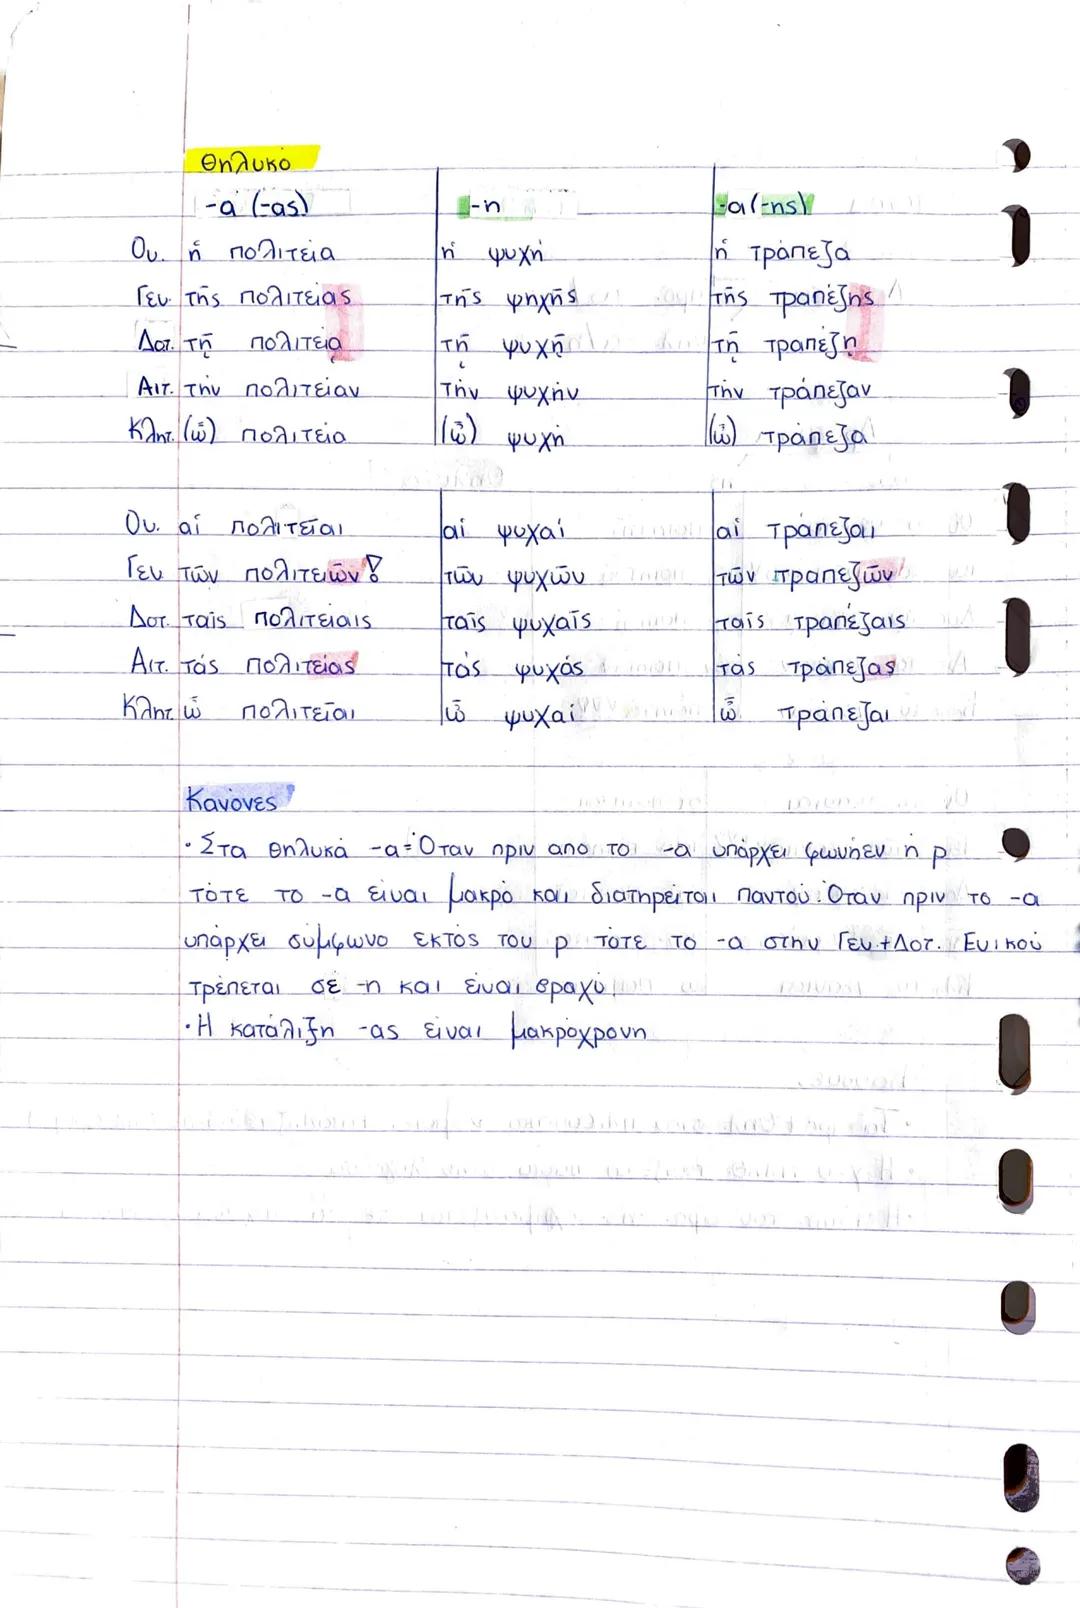 Θηλυκό
-α (-ας) -η -α (-ης)
Ον. ἡ πολιτεία ἡ ψυχή ἡ τράπεζα
Γεν. τῆς πολιτείας τῆς ψηχῆς τῆς τραπέζης
Δοτ. τῇ πολιτείᾳ τῇ ψυχῇ τῇ τραπέζῃ
Αιτ. τήν πολιτείαν τήν ψυχήν τήν τράπεζαν
Κλητ. (ὦ) πολιτεία (ὦ) ψυχή (ὦ) τράπεζα
Ον. αἱ πολιτεῖαι αἱ ψυχαί αἱ τράπεζαι
Γεν τῶν πολιτειῶν! τῶν ψυχῶν τῶν τραπεζῶν
Δοτ. ταῖς πολιτείαις ταῖς ψυχαῖς ταῖς τραπέζαις
Αιτ. τάς πολιτείας τάς ψυχάς τάς τράπεζας
Κλητ. ὦ πολιτεῖαι ὦ ψυχαί ὦ τράπεζαι
Κανόνες
· Στα θηλυκά -α = Όταν πριν από το -α υπάρχει φωνήεν ή ρ
τότε το -α είναι μακρό και διατηρείται παντού. Όταν πριν το -α
υπάρχει σύμφωνο εκτός του ρ τότε το -α στην Γεν.+Δοτ. Ενικού
τρέπεται σε -η και είναι βραχύ.
· Η κατάληξη -ας είναι μακρόχρονη